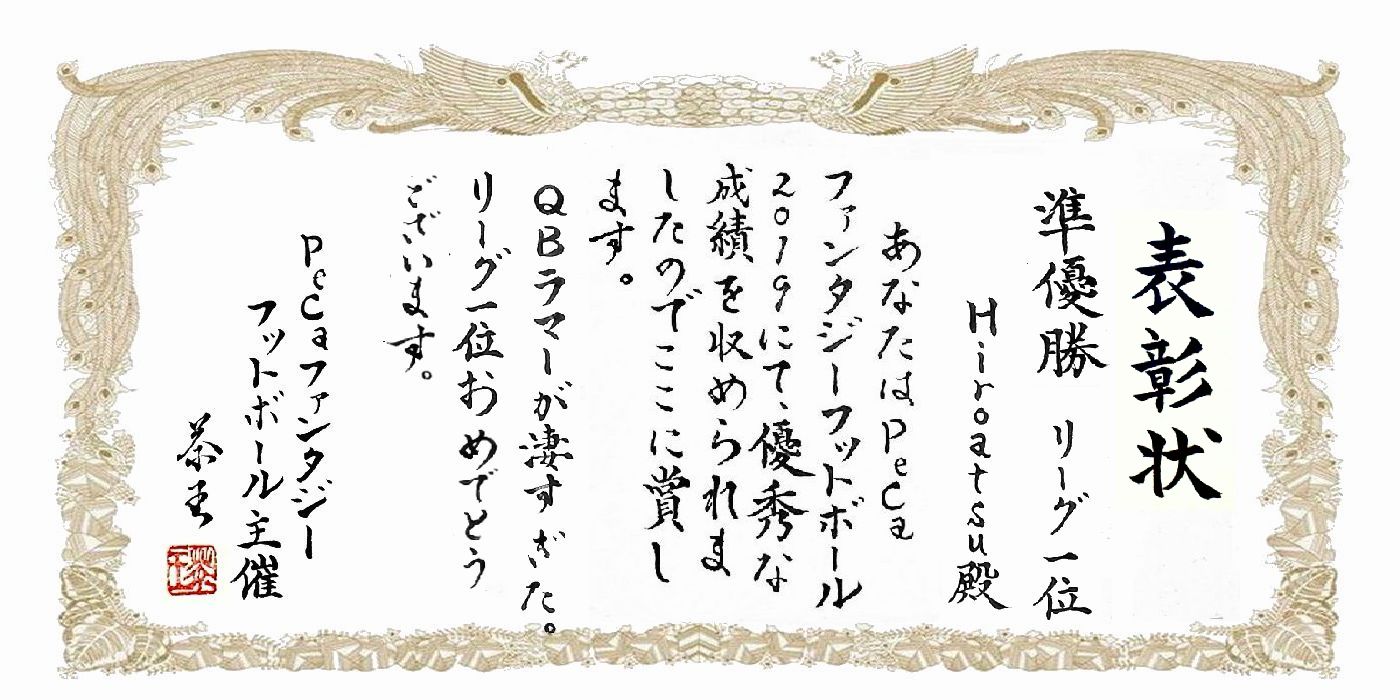 表彰状
準優勝 リーグ一位
Hiroatsu殿
あなたはPeCa
ファンタジーフットボール
2019にて、優秀な
成績を収められま
したのでここに賞し
ます。
QBラマーが凄すぎた。
リーグ一位おめでとう
ございます。
PeCaファンタジー
フットボール主催
茶王